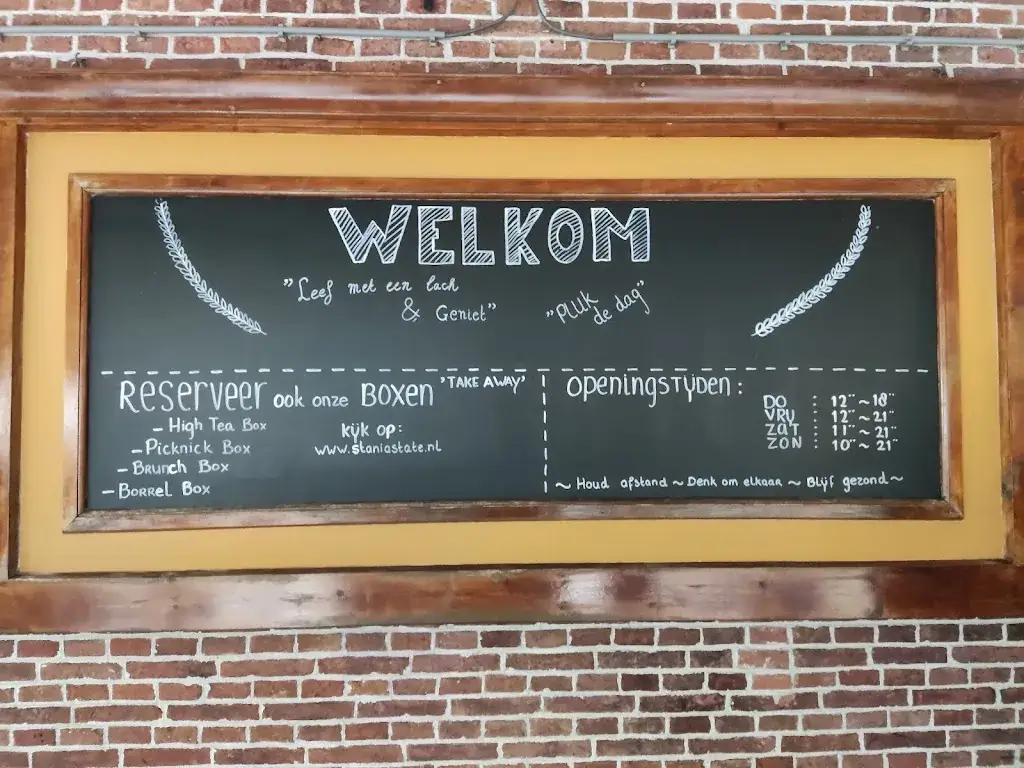 WELKOM
"Leef met een lach
& Geniet"
"PLUK
de dag"
Reserveer ook onze BOXEN 'TAKE AWAY'
- High Tea Box
- Picknick Box
- Brunch Box
- Borrel Box
kijk op:
www.staniastate.nl
OPENINGSTIJDEN:
DO : 12°° ~ 18°°
VRIJ : 12°° ~ 21°°
ZAT : 11°° ~ 21°°
ZON : 10°° ~ 21°°
~ Houd afstand ~ Denk om elkaar ~ Blijf gezond ~